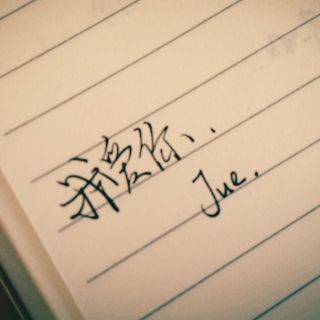 我爱你..
Jue.